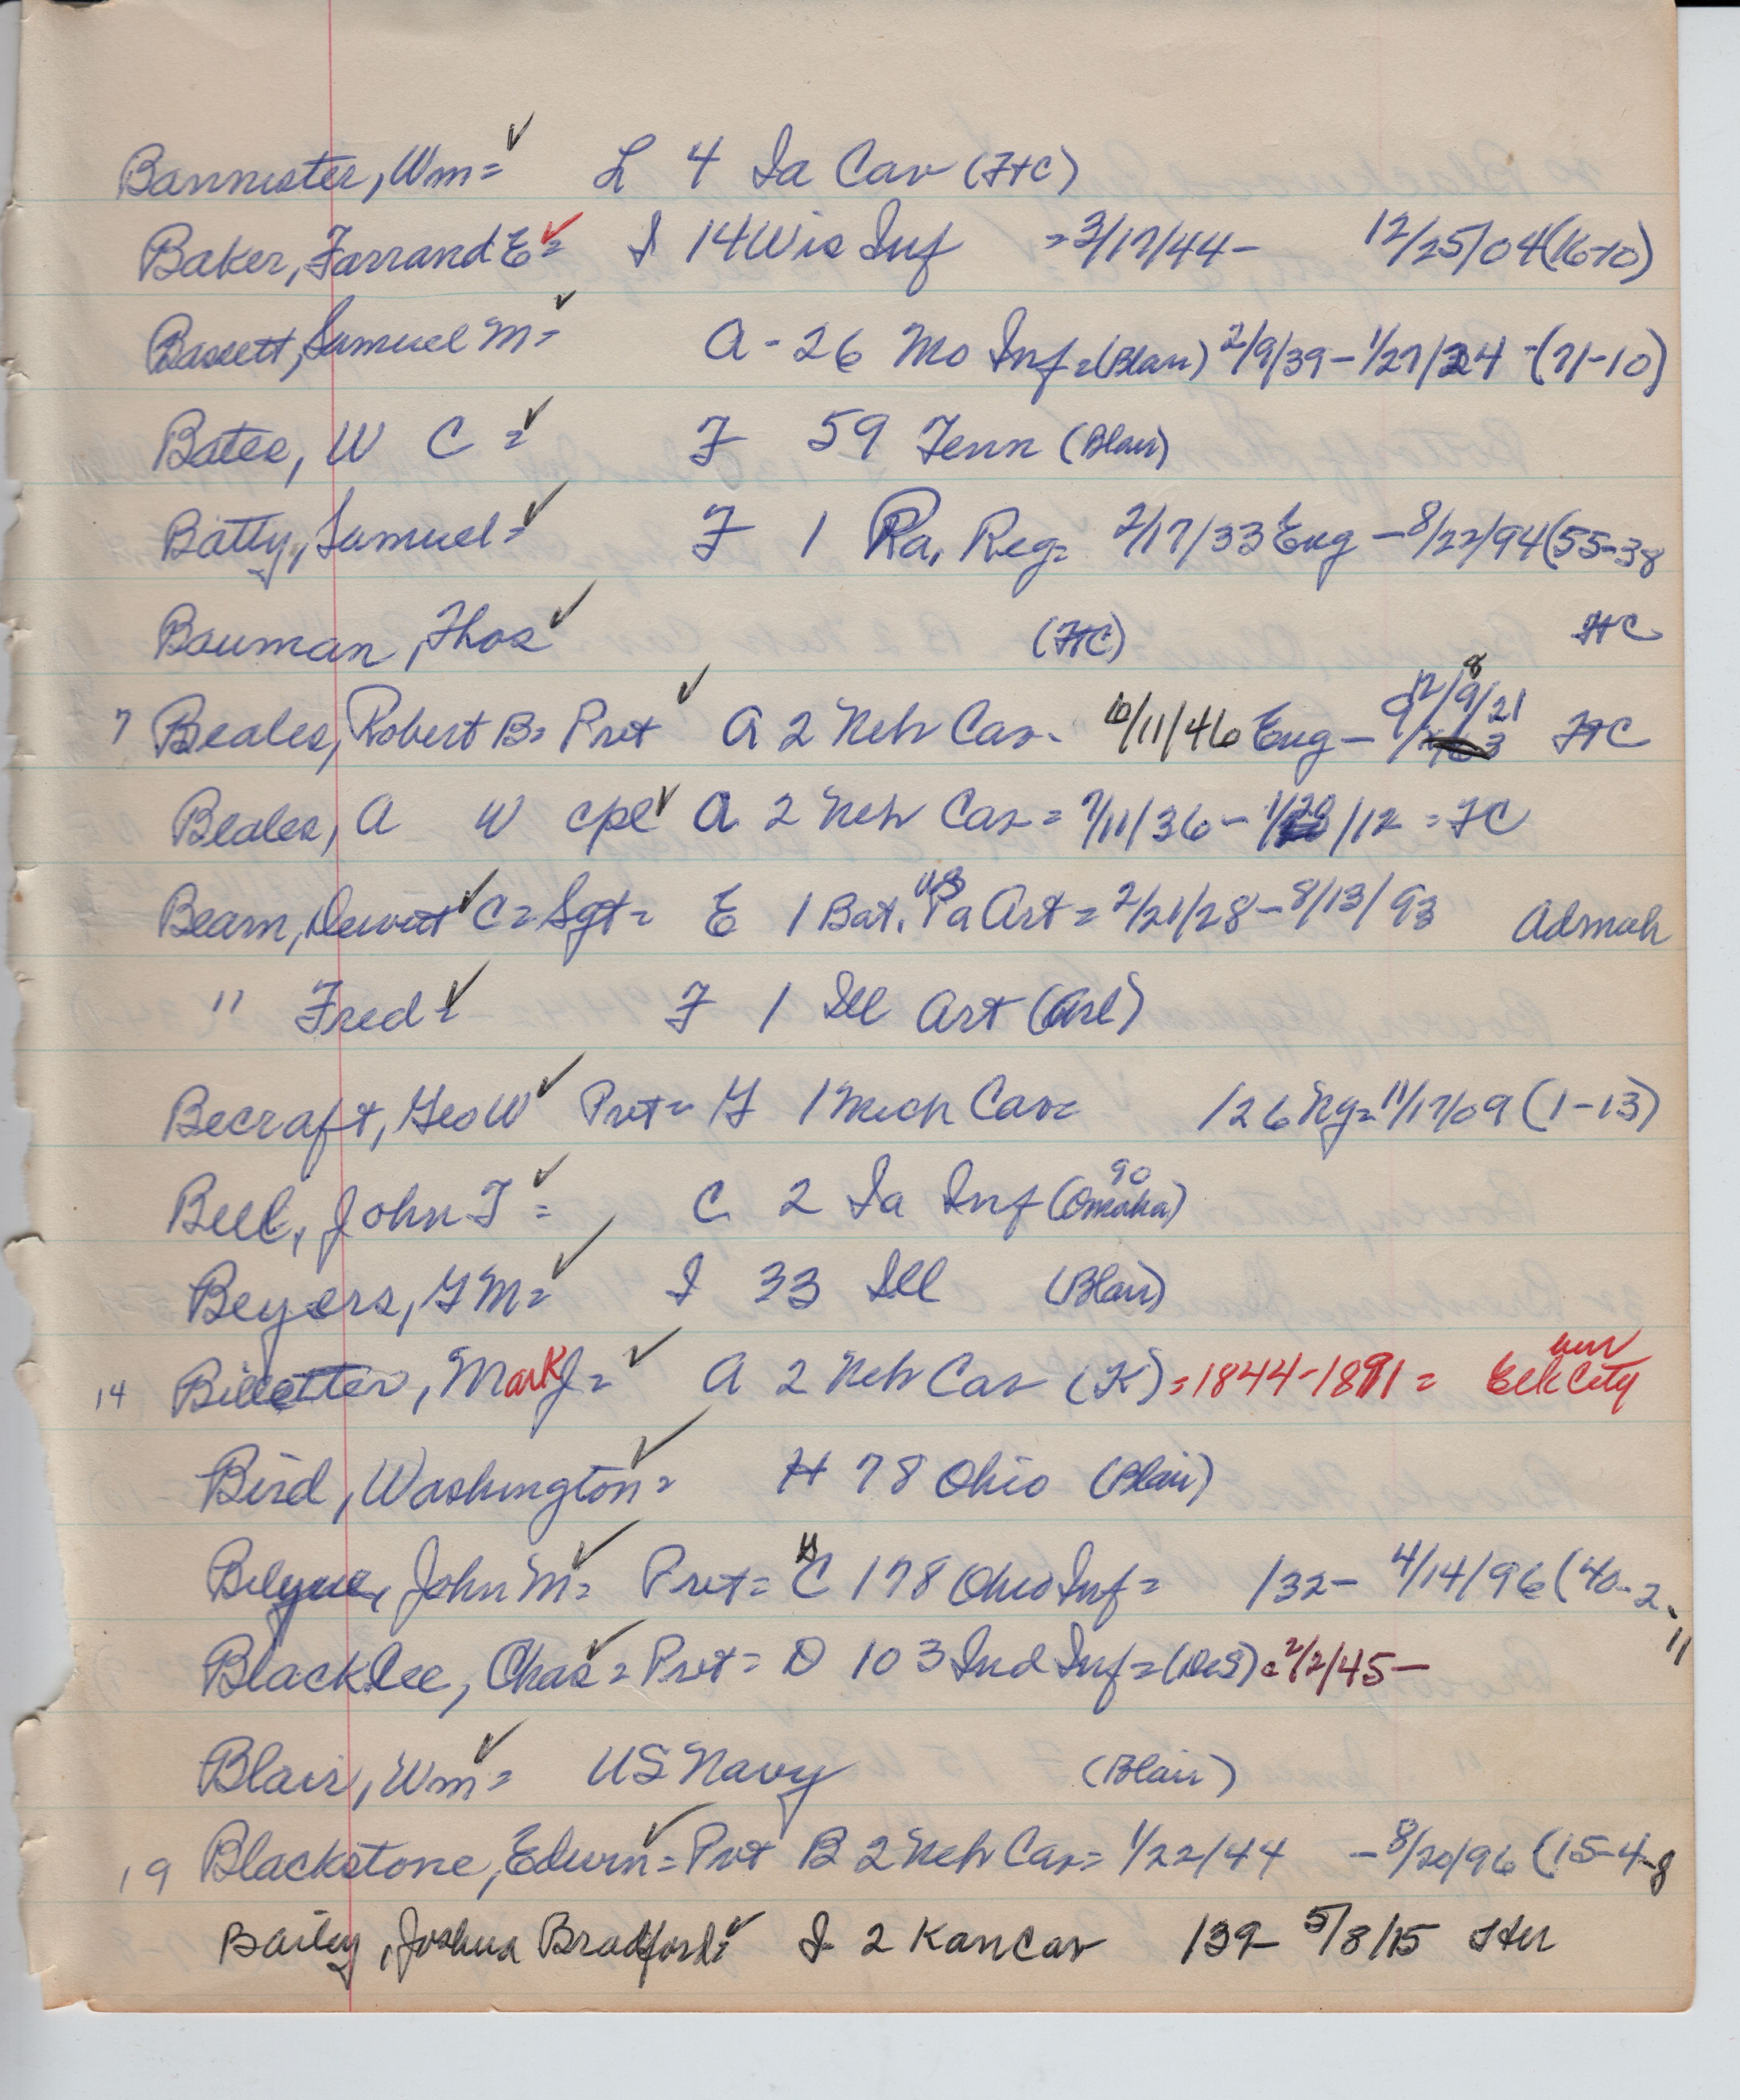 Bannister, Wm = ✓ L 4 Ia Cav (FtC)
Baker, Farrand E = ✓ I 14 Wis Inf = 3/17/44 - 12/25/04 (16-10)
Bassett, Samuel M = ✓ A - 26 Mo Inf = (Blair) 2/9/39 - 1/27/24 - (71-10)
Bates, W C = ✓ F 59 Tenn (Blair)
Batty, Samuel = ✓ F 1 Pa. Reg = 2/17/33 Eng - 8/22/94 (55-38
Bauman, Thos ✓ (FtC) FtC
7 Beales, Robert B = Pvt ✓ A 2 Neb Cav - 10/11/46 Eng - 12/8/21 FtC
Beales, A W cpl ✓ A 2 Neb Cav = 7/11/36 - 1/20/12 = FC
Beam, Dewitt ✓ C = Sgt = E 1 Bat. Pa Art = 2/21/28 - 8/13/93 Admah
" Fred = ✓ F 1 Ill Art (Arl)
Becraft, Geo W ✓ Pvt = G 1 Mich Cav = /26 Ny = 11/17/09 (1-13)
Bell, John T = ✓ C 2 Ia Inf (Omaha) 90
Beyers, G M = ✓ I 33 Ill (Blair)
14 Billetter, Mark J = ✓ A 2 Neb Cav (K) = 1844-1891 = Elk City
Bird, Washington = ✓ H 78 Ohio (Blair)
Bilyeu, John M = ✓ Pvt = C 178 Ohio Inf = /32 - 4/14/96 (40-2, 11
Blacklee, Chas ✓ = Pvt = D 103 Ind Inf = (DeS) = 2/2/45 -
Blair, Wm = ✓ US Navy (Blair)
19 Blackstone, Edwin ✓ = Pvt B 2 Neb Cav = 1/22/44 - 8/20/96 (15-4-8
Bailey, Joshua Bradford = ✓ I 2 Kan Cav /39 - 5/8/15